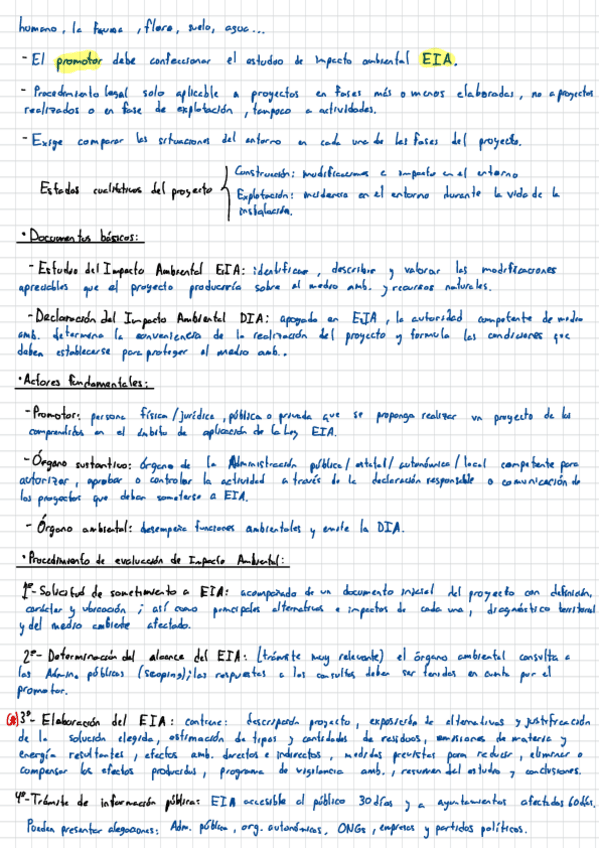 humano, la fauna, flora, suelo, agua...
- El promotor debe confeccionar el estudio de impacto ambiental EIA.
- Procedimiento legal solo aplicable a proyectos en fases más o menos elaboradas, no a proyectos
realizados o en fase de explotación, tampoco a actividades.
- Exige comparar las situaciones del entorno en cada una de las fases del proyecto.
Estados cualitativos del proyecto
Construcción: modificaciones e impacto en el entorno
Explotación: incidencia en el entorno durante la vida de la
instalación.
• Documentos básicos:
- Estudio del Impacto Ambiental EIA: identificar, describir y valorar las modificaciones
apreciables que el proyecto produciría sobre el medio amb. y recursos naturales.
- Declaración del Impacto Ambiental DIA: apoyado en EIA, la autoridad competente de medio
amb. determina la conveniencia de la realización del proyecto y formula las condiciones que
deben establecerse para proteger el medio amb..
• Actores fundamentales:
- Promotor: persona física/jurídica, pública o privada que se proponga realizar un proyecto de los
comprendidos en el ámbito de aplicación de la Ley EIA.
- Órgano sustantivo: órgano de la Administración pública/estatal/autonómica/local competente para
autorizar, aprobar o controlar la actividad a través de la declaración responsable o comunicación de
los proyectos que deban someterse a EIA.
- Órgano ambiental: desempeña funciones ambientales y emite la DIA.
• Procedimiento de evaluación de Impacto Ambiental:
1º- Solicitud de sometimiento a EIA: acompañado de un documento inicial del proyecto con definición,
carácter y ubicación; así como principales alternativas e impactos de cada una, diagnóstico territorial
y del medio ambiente afectado.
2º- Determinación del alcance del EIA: (trámite muy relevante) el órgano ambiental consulta a
las Admins. públicas (scoping); las respuestas a las consultas deben ser tenidas en cuenta por el
promotor.
(*) 3º- Elaboración del EIA: contiene: descripción proyecto, exposición de alternativas y justificación
de la solución elegida, estimación de tipos y cantidades de residuos, emisiones de materia y
energía resultantes, efectos amb. directos e indirectos, medidas previstas para reducir, eliminar o
compensar los efectos producidos, programa de vigilancia amb., resumen del estudio y conclusiones.
4º- Trámite de información pública: EIA accesible al público 30 días y a ayuntamientos afectados 60 días.
Pueden presentar alegaciones: Adm. pública, org. autonómicos, ONGs, empresas y partidos políticos.